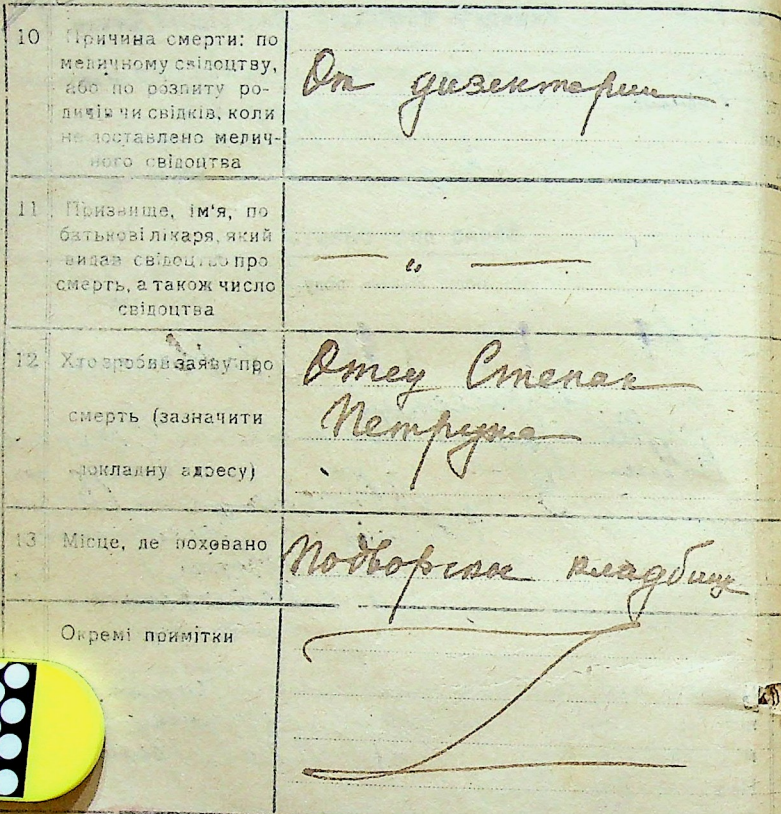 10 Причина смерти: по
медичному свідоцтву,
або по розпиту ро-
дичів чи свідків, коли
не доставлено медич-
ного свідоцтва
От дизентерии
11 Призвище, ім'я, по
батькові лікаря, який
видав свідоцтво про
смерть, а також число
свідоцтва
— „ —
12 Хто зробив заяву про
смерть (зазначити
докладну адресу)
Отец Степан
Петруня
13 Місце, де поховано
кладбищ
Окремі примітки